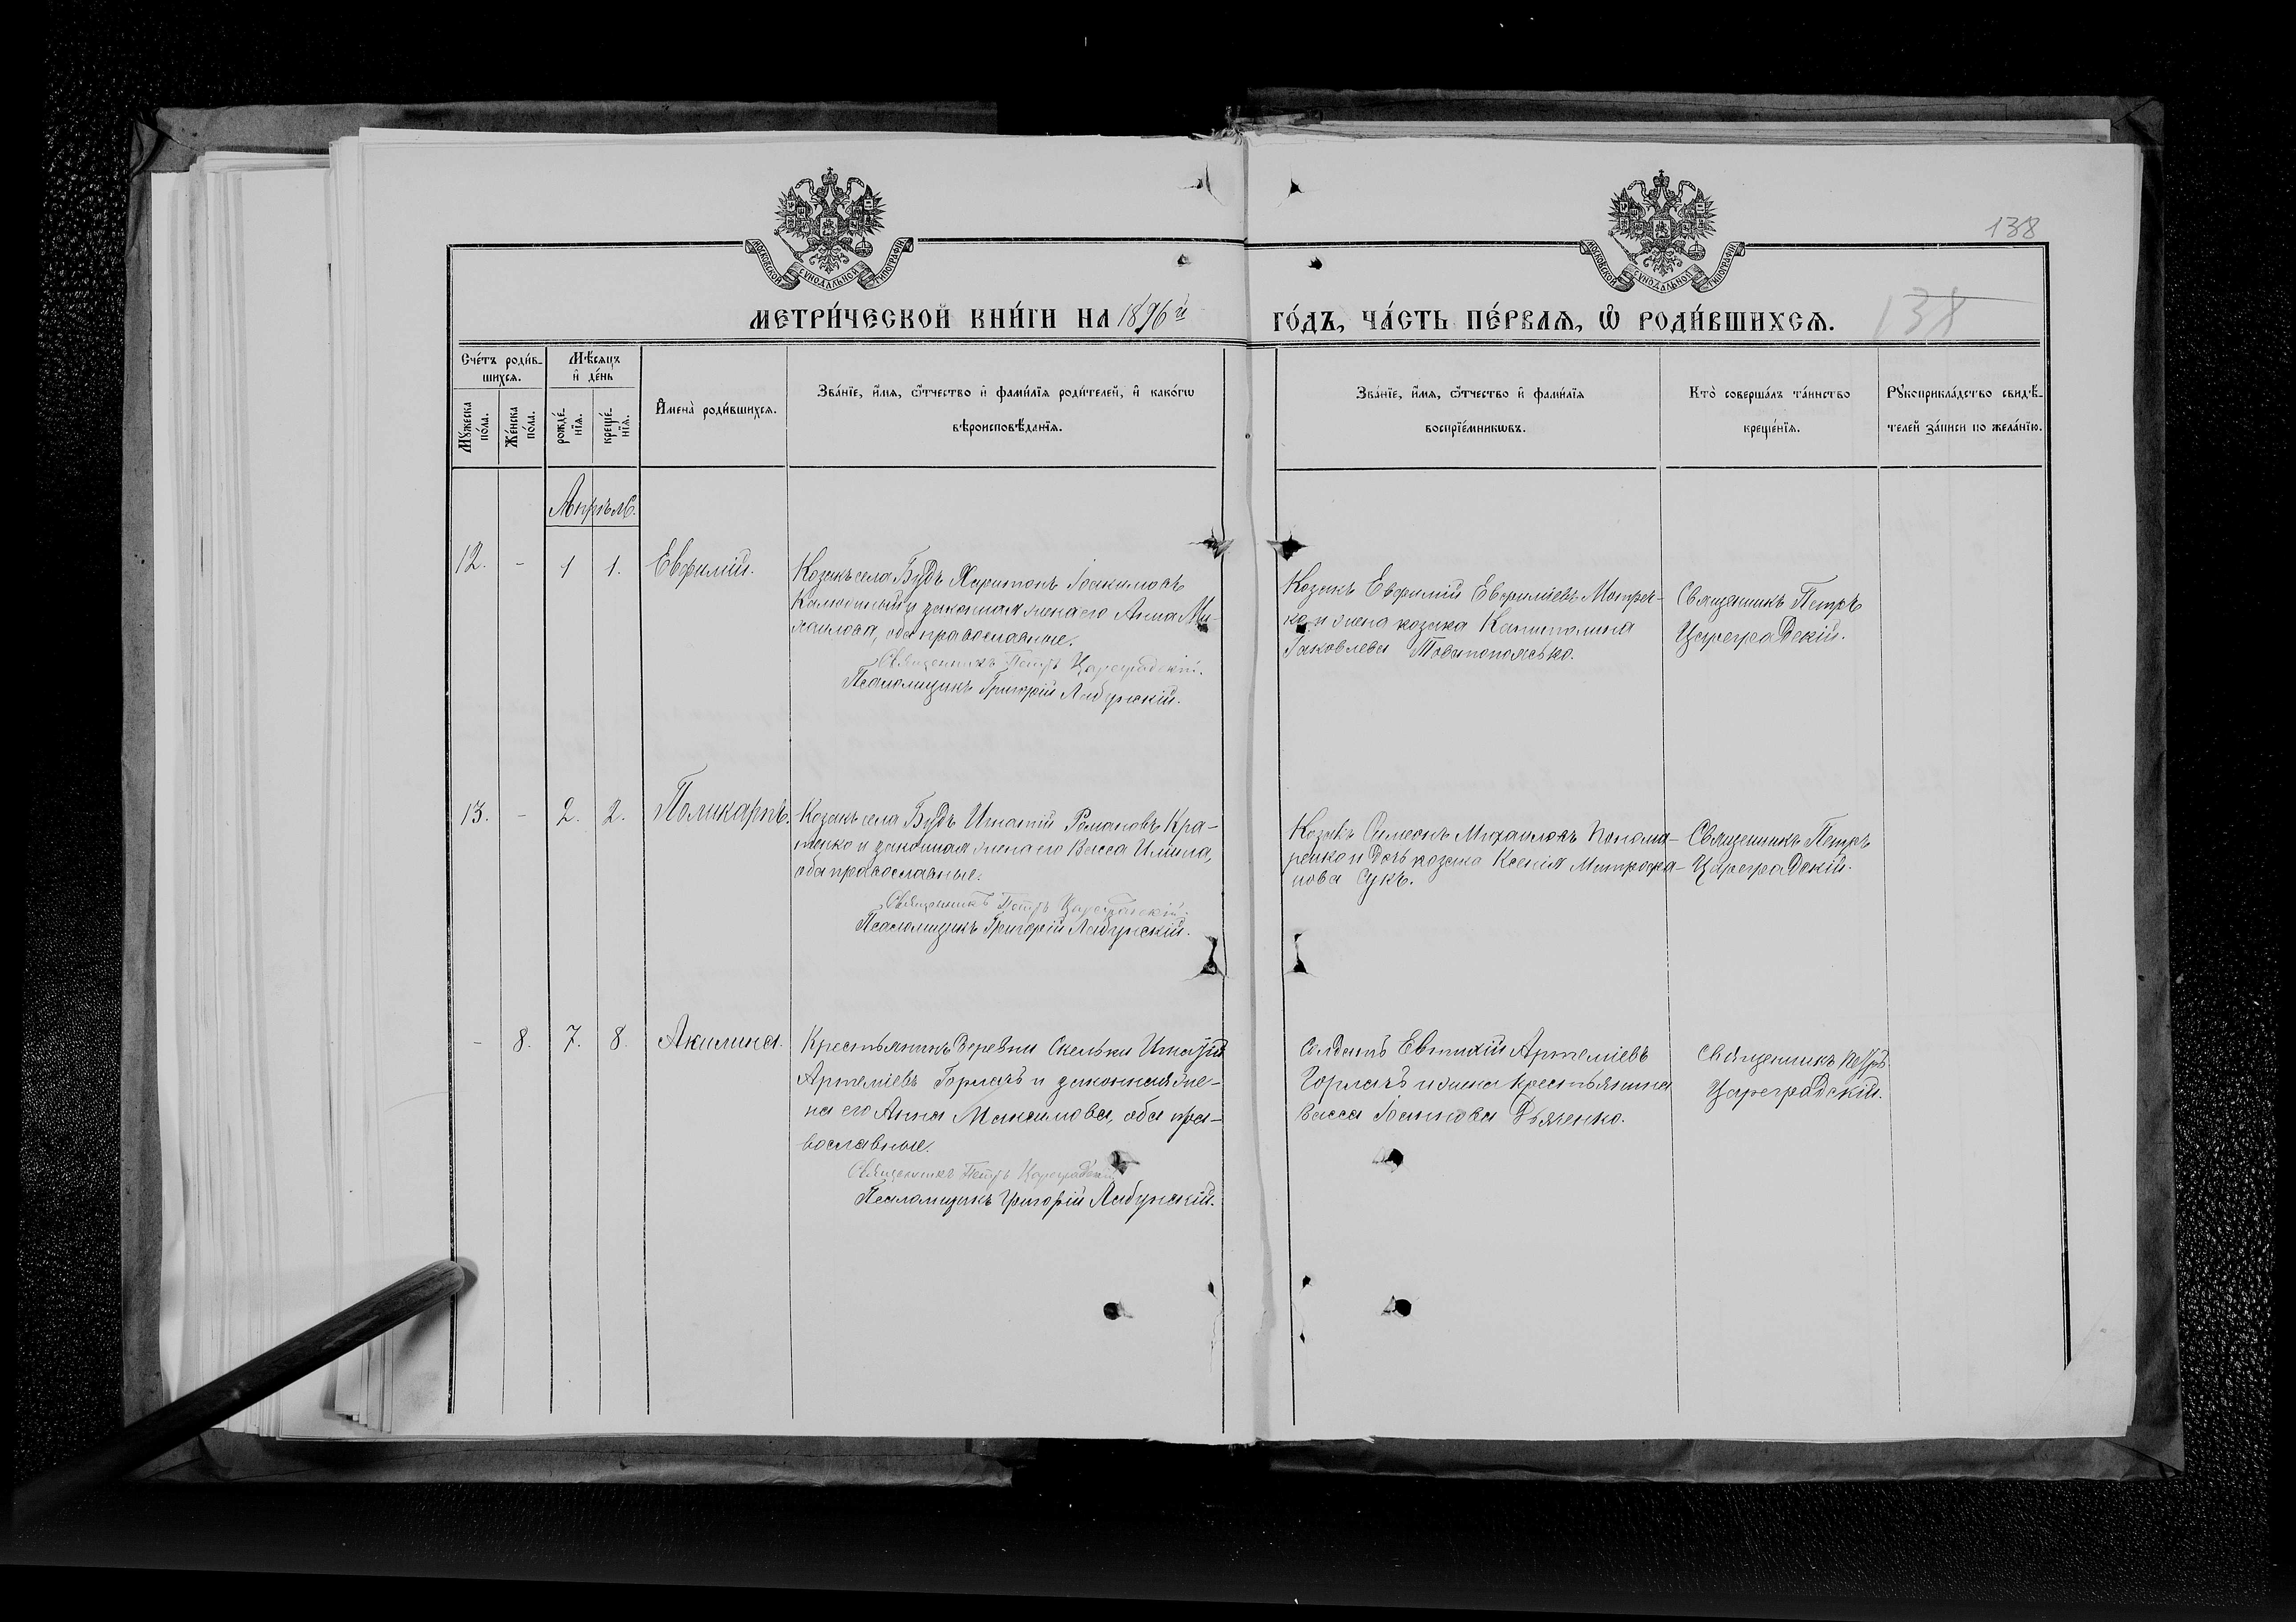 138
МОСКОВСКОЙ СѴНОДАЛЬНОЙ ТИПОГРАФІИ
МОСКОВСКОЙ СѴНОДАЛЬНОЙ ТИПОГРАФІИ
МЕТРИ́ЧЕСКОЙ КНИ́ГИ НА 1896й ГО́ДЪ, ЧА́СТЬ ПЕ́РВАЯ, Ѡ РОДИ́ВШИХСЯ.
138
Сче́тъ роди́в-
шихся.
Мѣ́сяцъ
и҆ де́нь
Мꙋ́жеска
по́ла.
Же́нска
по́ла.
рожде́-
нїя.
креще́-
нїя.
И҆мена̀ роди́вшихся.
Зва́нїе, и҆́мя, ѻ҆́тчество и҆ фами́лїя роди́телей, и҆ како́гѡ
вѣроисповѣ́данїя.
Зва́нїе, и҆́мя, ѻ҆́тчество и҆ фами́лїя
воспрїе́мникѡвъ.
Кто̀ соверша́лъ та́инство
креще́нїя.
Рꙋкоприкла́дство свидѣ́-
телей за́писи по жела́нїю.
Апрѣль.
12. - 1 1. Евфимій.
Козакъ села Будъ Харитонъ Іоакимовъ
и законная жена его Анна Ми-
хаилова, оба православные.
Священникъ Петръ Цареградскій.
Псаломщикъ Григорій Лабунскій.
Козакъ Евфимій Евфиміевъ Мотреч-
ко и жена козака Капитолина
Іаковлева Товстопятько.
Священникъ Петръ
Цареградскій.
13. - 2. 2. Поликарпъ.
Козакъ села Будъ Игнатій Романовъ Кра-
и законная жена его Васса
оба православные.
Священникъ Петръ Цареградскій.
Псаломщикъ Григорій Лабунскій.
Козакъ Симеонъ Михаиловъ Понома-
ренко и дочь козака Ксенія Митрофа-
нова Сукъ.
Священникъ Петръ
Цареградскій.
- 8. 7. 8. Акилина.
Крестьянинъ деревни Скельки Игнатій
Артеміевъ Горлачъ и законная же-
на его Анна Максимова, оба пра-
вославные.
Священникъ Петръ Цареградскій
Псаломщикъ Григорій Лабунскій.
Солдатъ Евтихій Артеміевъ
Горлачъ и жена крестьянина
Васса Іоаннова Дьяченко.
Священникъ Петръ
Цареградскій.